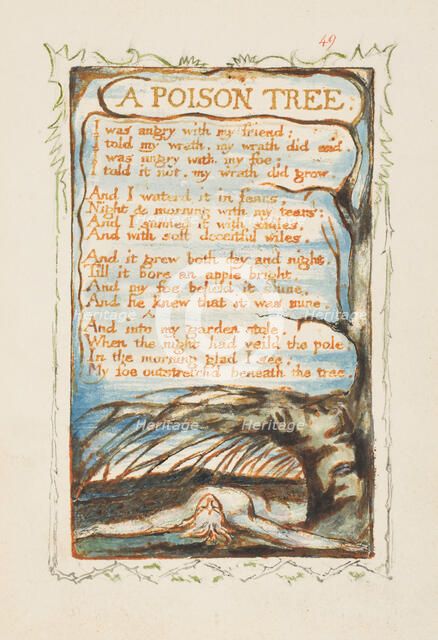 49
A POISON TREE.
I was angry with my friend;
I told my wrath, my wrath did end.
I was angry with my foe:
I told it not, my wrath did grow.
And I waterd it in fears,
Night & morning with my tears:
And I sunned it with smiles,
And with soft deceitful wiles.
And it grew both day and night,
Till it bore an apple bright.
And my foe beheld it shine,
And he knew that it was mine.
And into my garden stole,
When the night had veild the pole;
In the morning glad I see,
My foe outstretchd beneath the tree.
Heritage Heritage
Heritage Heritage
Heritage Heritage